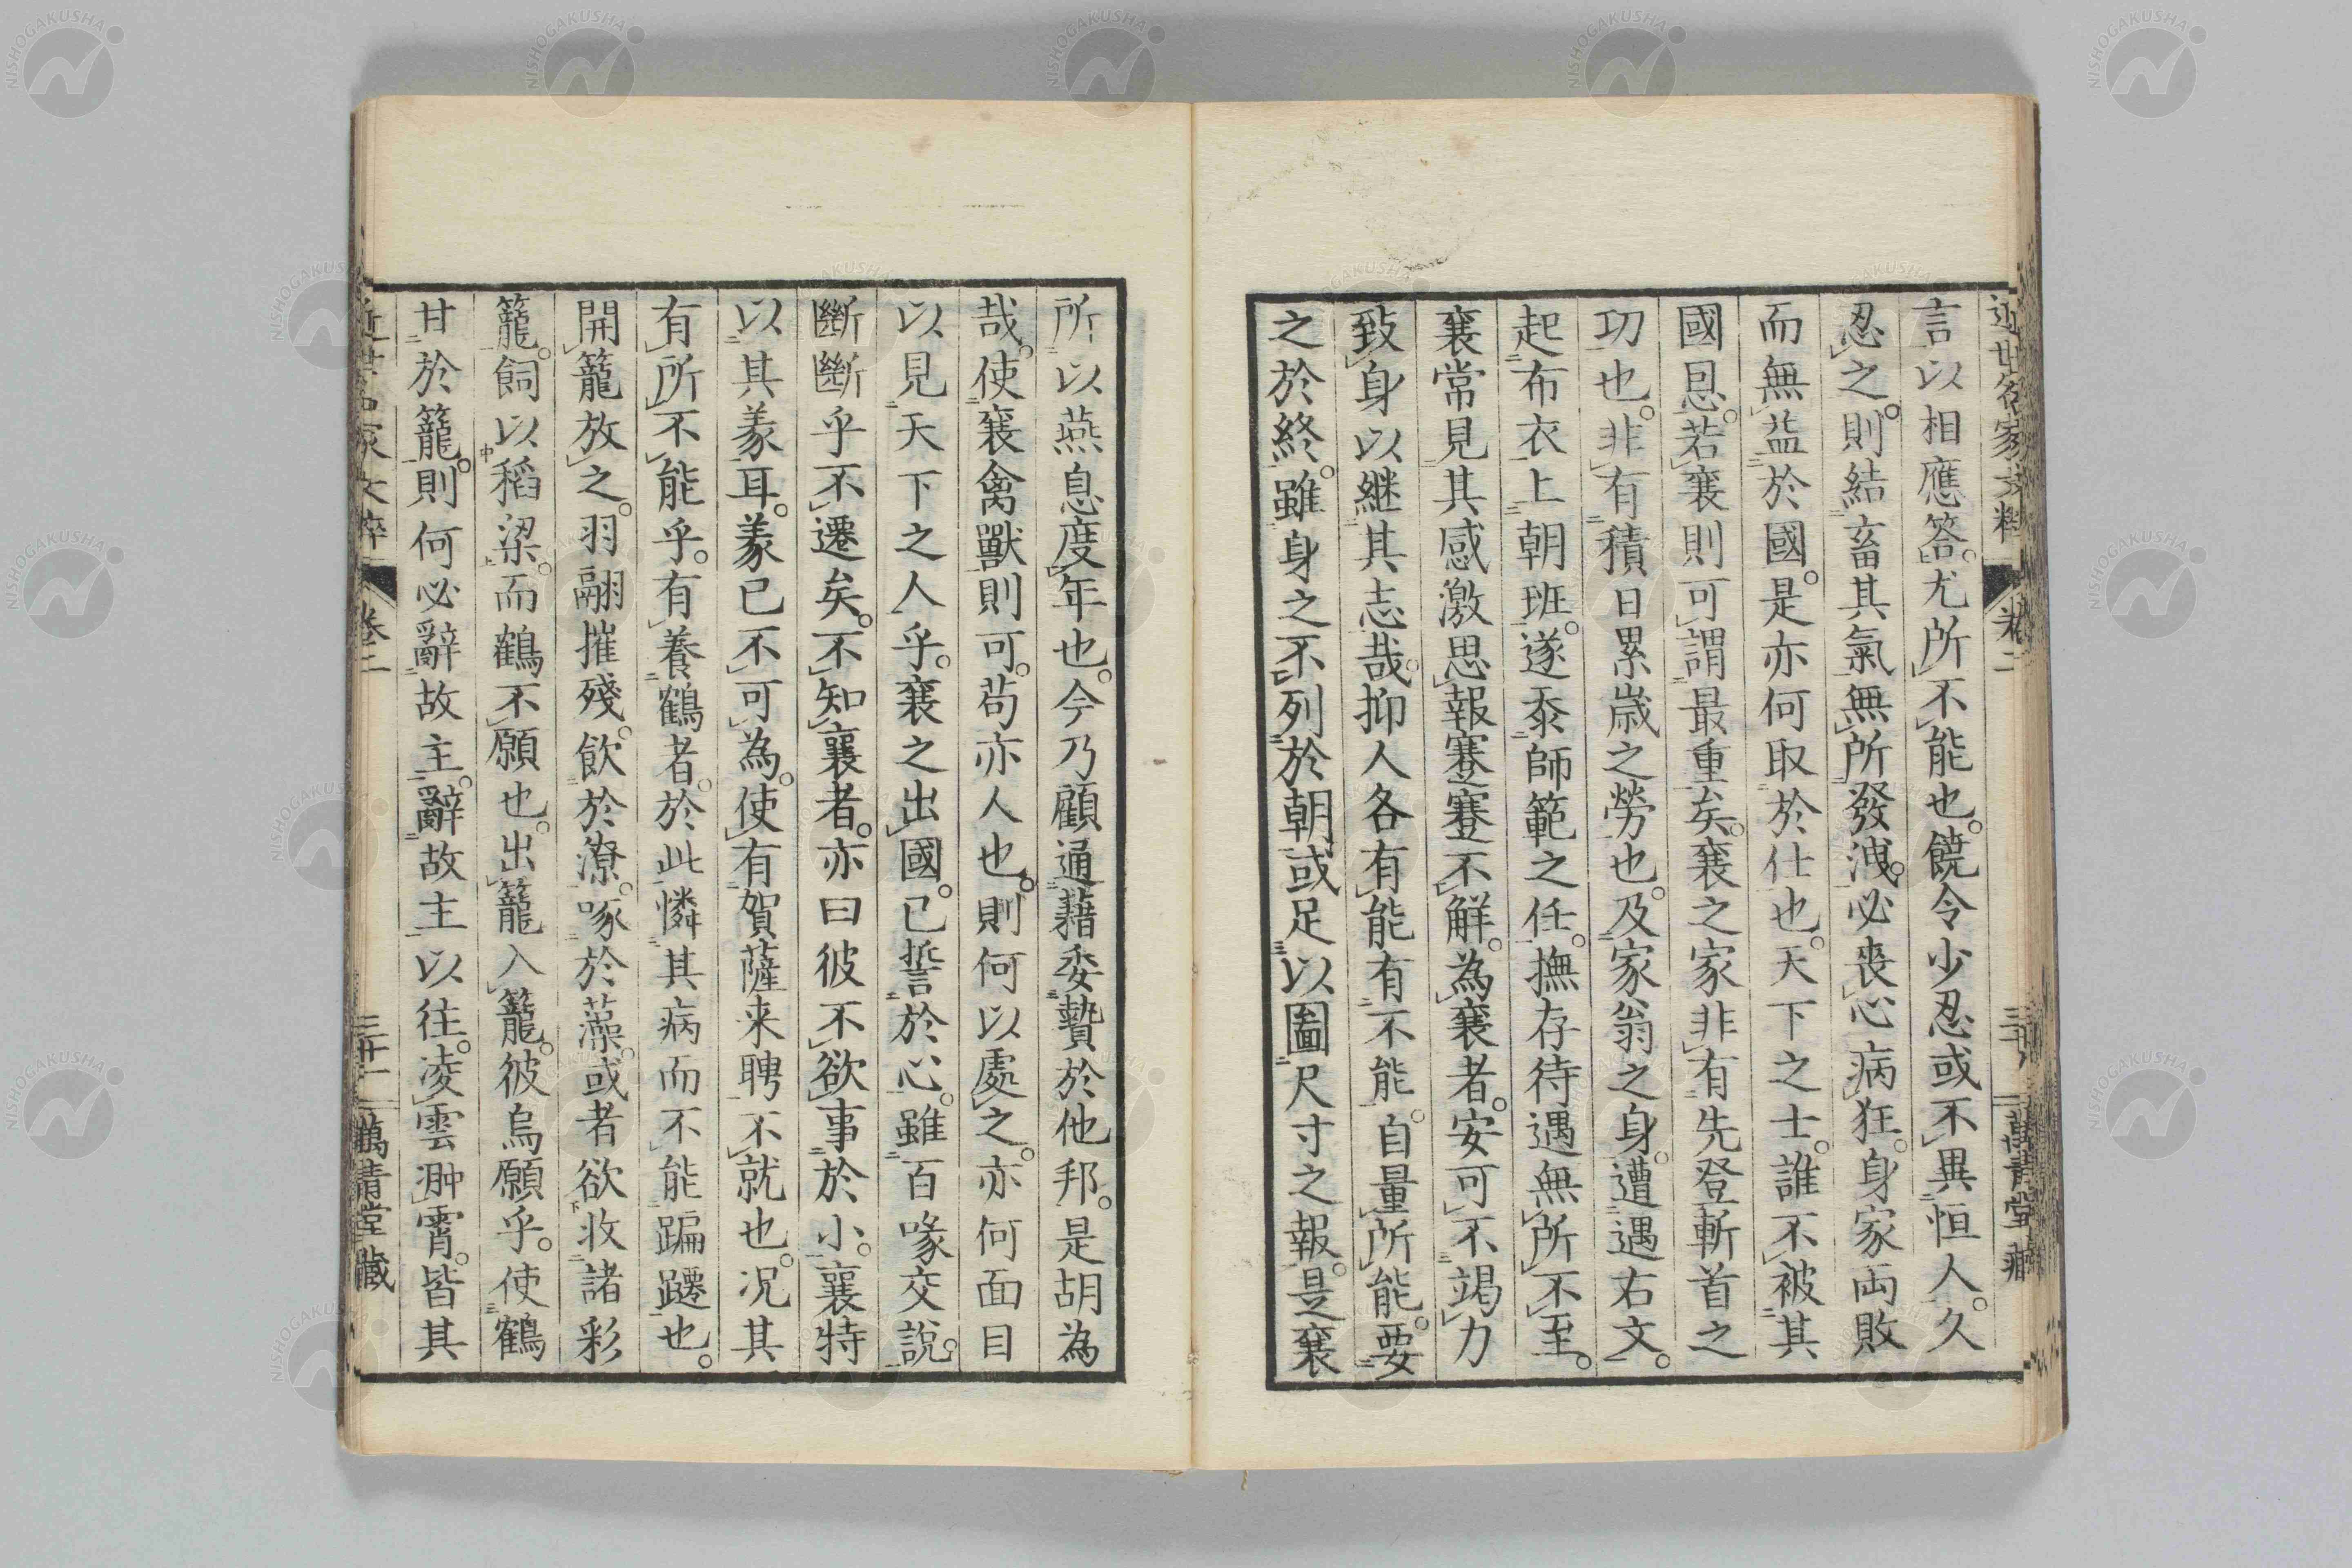 言以相應答。尤所不能也。饒令少忍或不異恒人。久
忍之。則結畜其氣無所發洩。必喪心病狂。身家両敗
而無益於國。是亦何取於仕也。天下之士。誰不被其
國恩。若襄則可謂最重矣。襄之家非有先登斬首之
功也。非有積日累歳之勞也。及家翁之身。遭遇右文。
起布衣上朝班。遂忝師範之任。撫存待遇無所不至。
襄常見其感激思報蹇蹇不解。為襄者。安可不竭力
致身以継其志哉。抑人各有能有不能。自量所能。要
之於終。雖身之不列於朝或足以圖尺寸之報。是襄
所以燕息度年也。今乃顧通藉委贄於他邦。是胡為
哉。使襄禽獸則可。苟亦人也。則何以處之。亦何面目
以見天下之人乎。襄之出國。已誓於心。雖百喙交說。
斷斷乎不遷矣。不知襄者。亦曰彼不欲事於小。襄特
以其義耳。義已不可為。使有賀薩来聘不就也。况其
有所不能乎。有養鶴者。於此憐其病而不能蹁躚也。
開籠放之。羽翮摧殘。飲於潦。啄於藻。或者欲收諸彩
籠。飼以稻梁。而鶴不願也。出籠入籠。彼烏願乎。使鶴
甘於籠。則何必辭故主。辭故主以往。凌雲翀霄。皆其
近世名家文粹
卷二
三十一
萬青堂藏
NISHOGAKUSHA